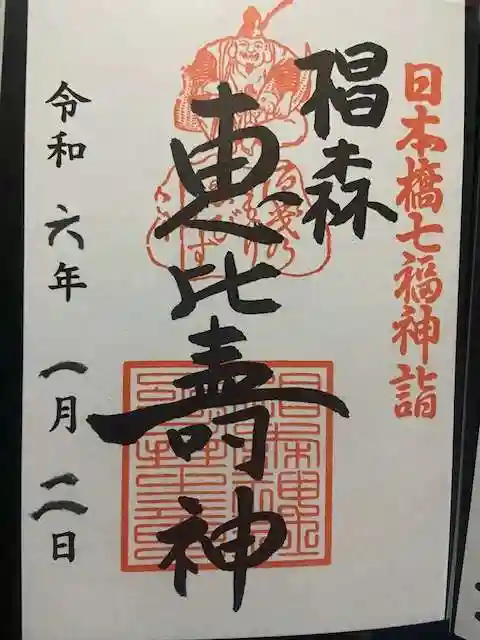 日本橋七福神詣
椙森
恵比壽神
令和 六年 一月 二日